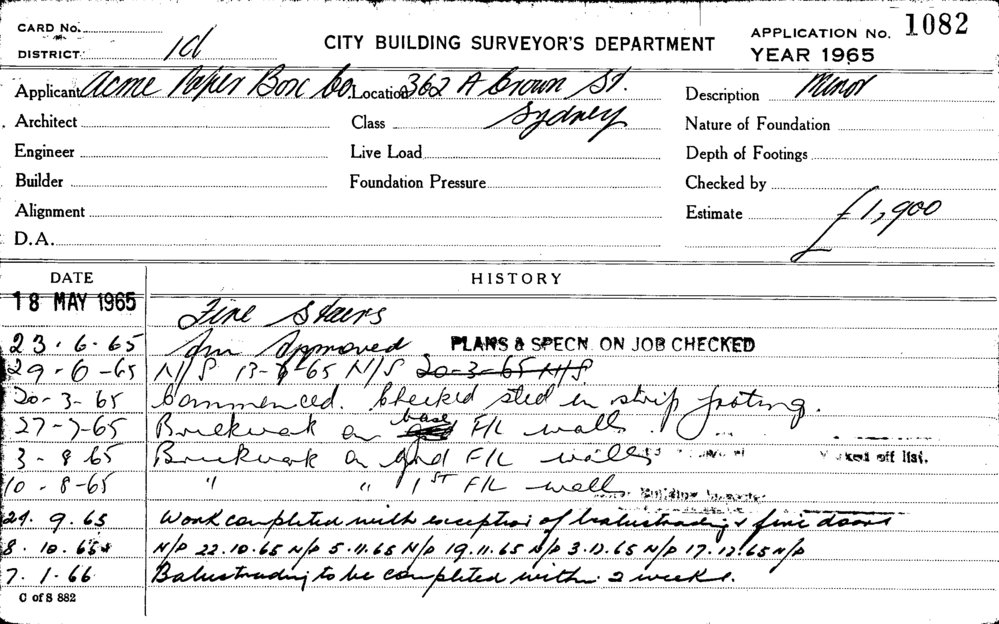 CARD No.
DISTRICT: 1d
CITY BUILDING SURVEYOR'S DEPARTMENT
APPLICATION No. 1082
YEAR 1965
Applicant Acme Paper Box Co. Location 362 A Crown St. Description Minor
Architect Class Sydney Nature of Foundation
Engineer Live Load Depth of Footings
Builder Foundation Pressure Checked by
Alignment Estimate £1,900
D.A.
DATE HISTORY
18 MAY 1965 Fire Stairs
23.6.65 Approved PLANS & SPECN. ON JOB CHECKED
29-6-65 N/S 13-7-65 N/S 20-3-65 N/S
20-3-65 Commenced. Checked steel in strip footing.
27-7-65 Brickwork on base F/L walls.
3-8-65 Brickwork on gnd F/L walls off list.
10-8-65 " " 1ST F/L walls Building
29.9.65 Work completed with exception of balustrading & fire doors
8.10.65 N/P 22.10.65 N/P 5.11.65 N/P 19.11.65 N/P 3.12.65 N/P 17.12.65 N/P
7.1.66 Balustrading to be completed within 2 weeks.
C of S 882